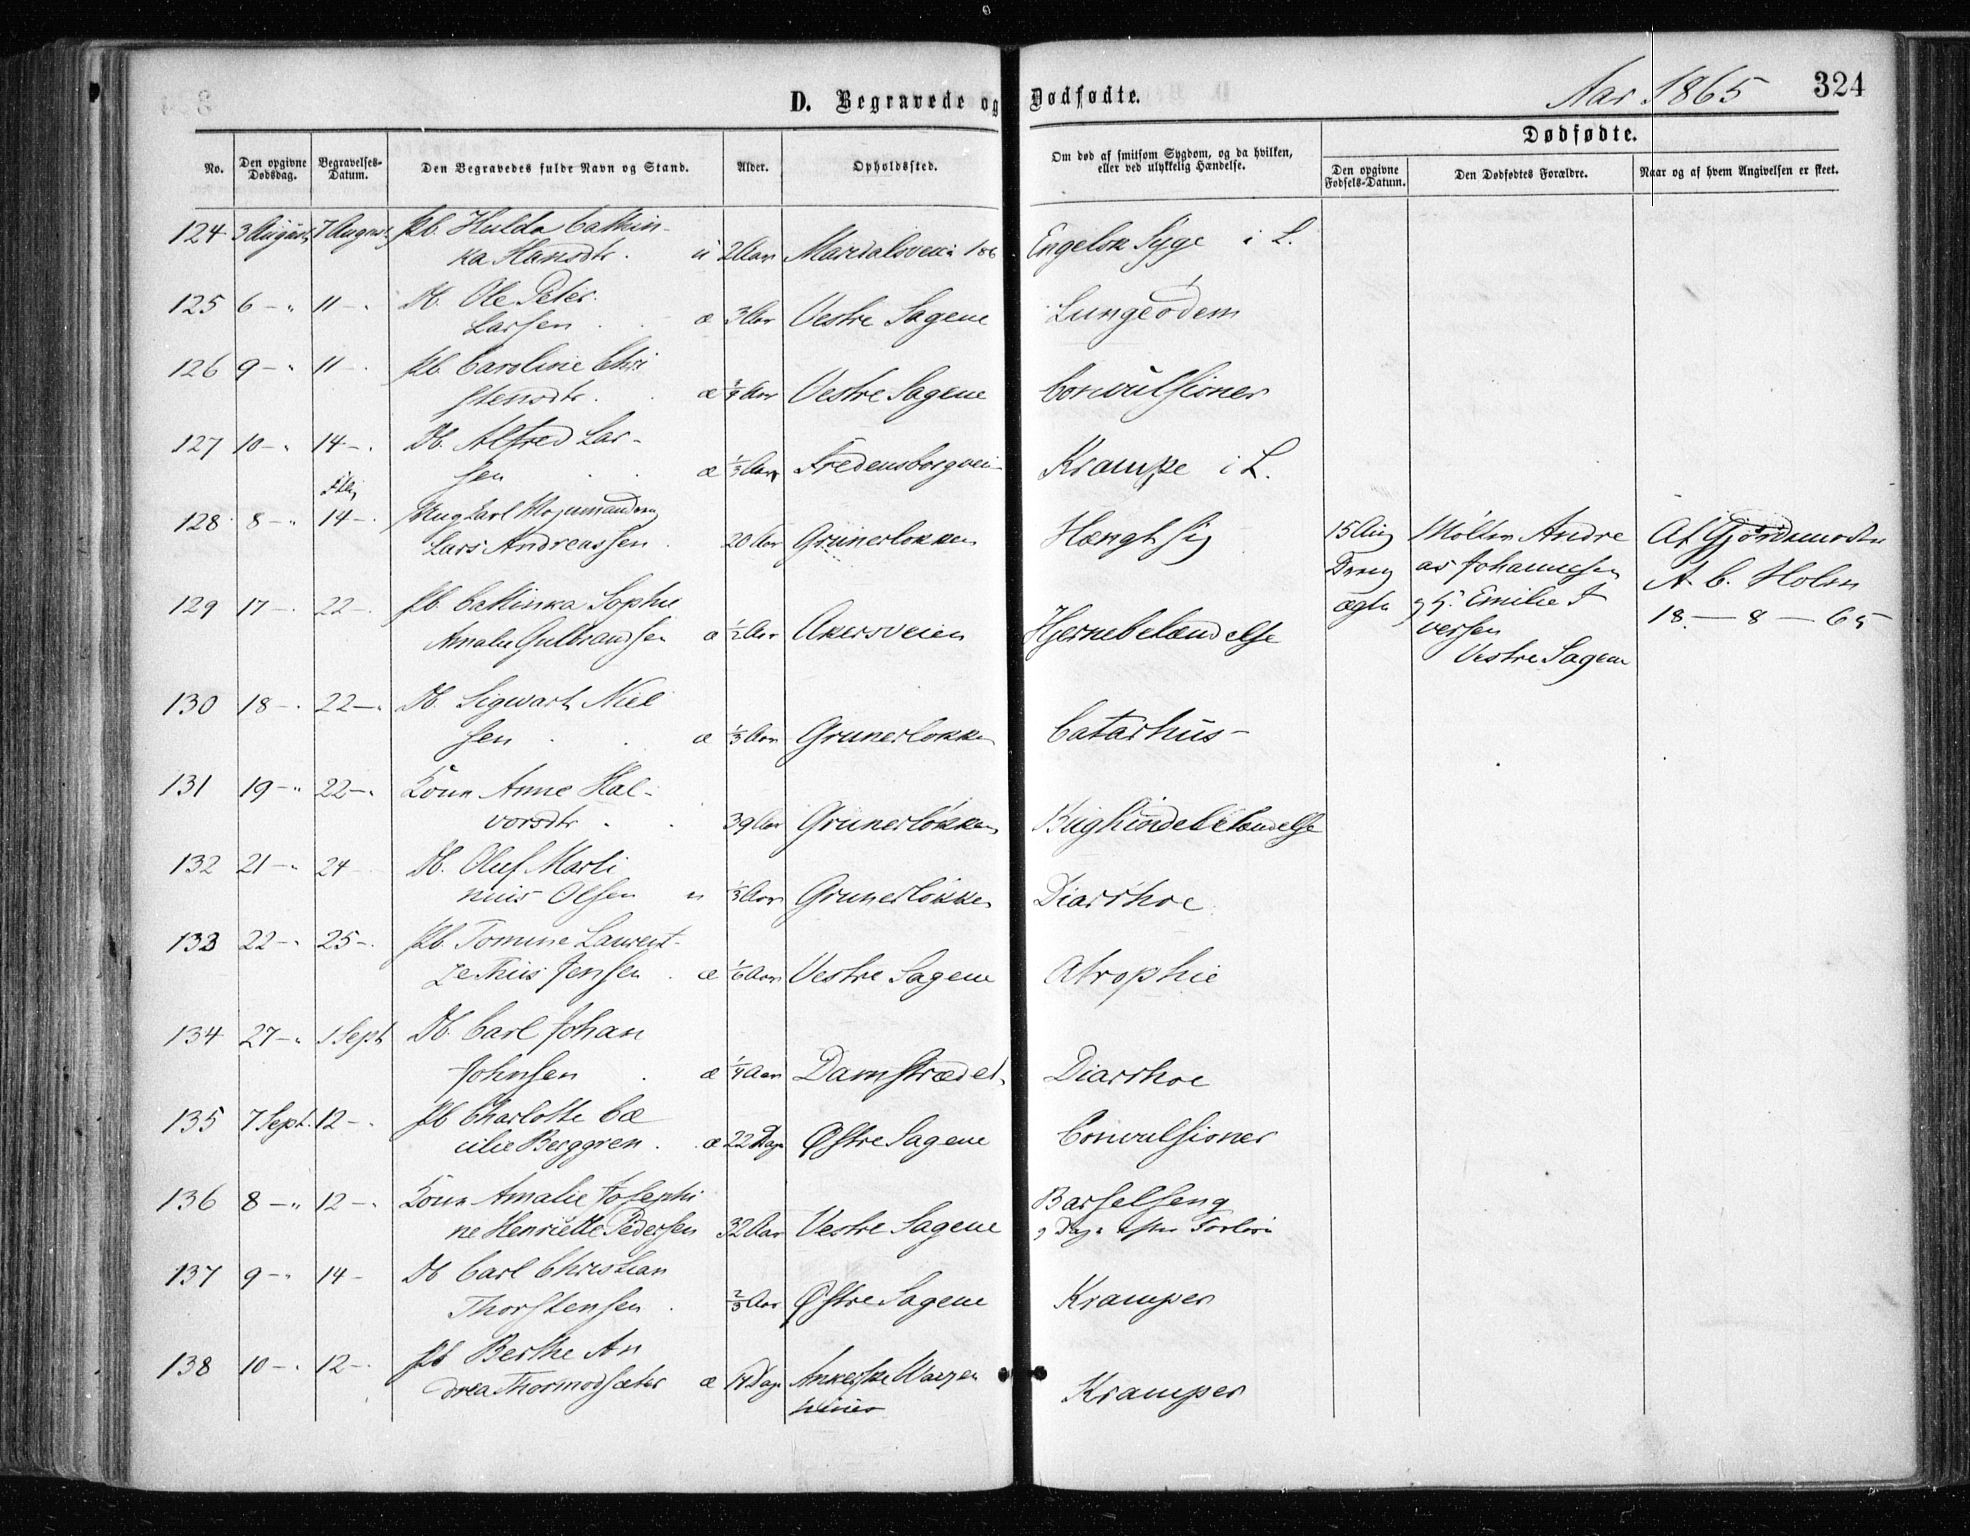 D. Begravede og Dødfødte.
Aar 1865
324
No.
Den opgivne Dødsdag.
Begravelses-Datum.
Den Begravedes fulde Navn og Stand.
Alder.
Opholdssted.
Om død af smitsom Sygdom, og da hvilken, eller ved ulykkelig Hændelse.
Dødfødte.
Den opgivne Fødsels-Datum.
Den Dødfødtes Forældre.
Naar og af hvem Angivelsen er skeet.
124 3 August 7 August Pb. Hulda Cathin-
ka Hansdtr. u 2 Aar Maridalsveien 186 Engelsk Syge i L.
125 6 - " 11 - Db. Ole Peter
Larsen æ 3 Aar Vestre Sagene Lungeødem
126 9 - " 11 - Pb. Caroline Chri
stensdtr. æ Aar Vestre Sagene Convulsioner
127 10 - " 14 - Db. Alfred Lar-
sen æ 1/3 Aar Fredensborgvei Krampe i L.
128 8 - " 14 - Ungkarl
Lars Andreassen 20 Aar Grunerløkken Hængt sig
15 Aug
Dreng
ægte
Andre
as Johannesen
og H. Emilie I
versen
Vestre Sagene
Af Gjordemoder
A. C. Holm
18 - 8 - 65
129 17 - 22 - Pb. Cathinka Sophie
Amalie Gulbrandsen æ 1/2 Aar Akersveien Hjernebetændelse
130 18 - 22 - " Db. Sigwart Niel
sen æ 1/3 Aar Grunerløkken Catarhus -
131 19 - " 22 - " Kone Anne Hal-
vorsdtr. 39 Aar Grunerløkken Bughindebetændelse
132 21 - " 24 Db. Oluf Marti
nius Olsen u 1/3 Aar Grunerløkken Diarrhoe
133 22 - 25 - Pb. Tomine Laurent-
ze Jensen æ 1/6 Aar Vestre Sagene Atrophie
134 27 - " 1 Sept Db. Carl Johan
Johnsen æ 1/4 Aar Damstrædet Diarrhoe
135 7 Sept. 12 - Pb Charlotte Cæ
cilie Berggren æ 22 Dage Østre Sagene Convulsioner
136 8 - " 12 - Kone Amalie Josephi
ne Henriette Pedersen 32 Aar Vestre Sagene Barselseng
9 Dage efter
137 9 - " 14 - Db Carl Christian
Thorstensen 2/3 Aar Østre Sagene Kramper
138 10 - 12 - Pb Berthe An
drea Thormodsæter æ 14 Dage Ankerske Waizen
huus Kramper